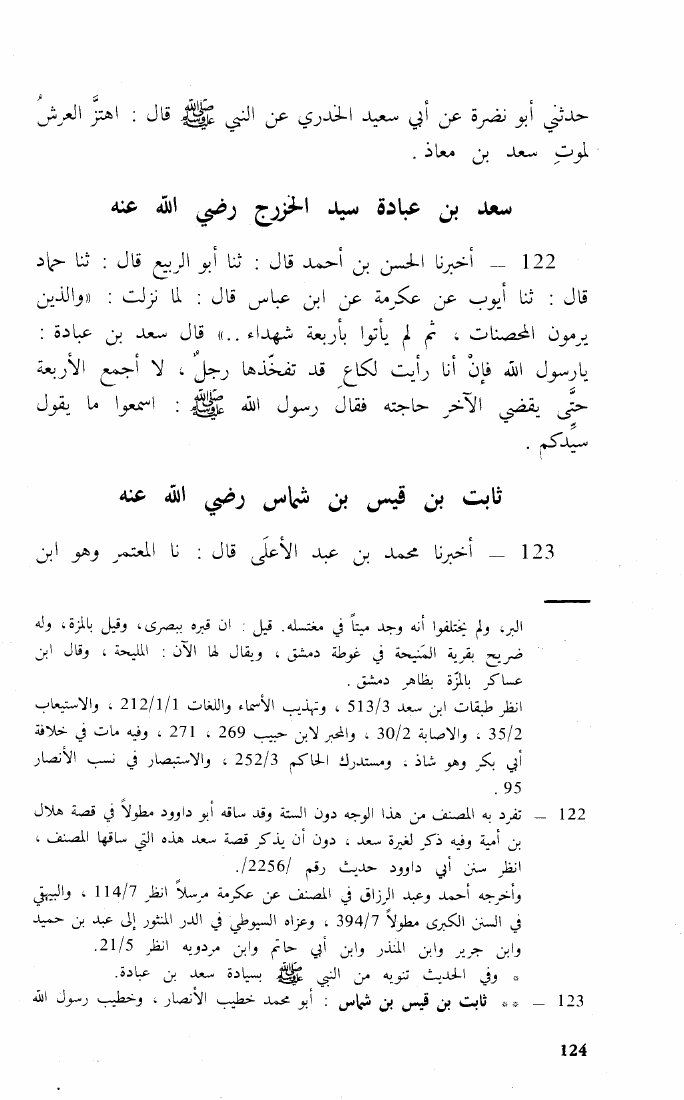 حدثني أبو نضرة عن أبي سعيد الخدري عن النبي ﷺ قال : اهتزَّ العرشُ
لموتِ سعد بن معاذ .
سعد بن عبادة سيد الخزرج رضي الله عنه
122 — أخبرنا الحسن بن أحمد قال : ثنا أبو الربيع قال : ثنا حماد
قال : ثنا أيوب عن عكرمة عن ابن عباس قال : لما نزلت : «والذين
يرمون المحصنات ، ثم لم يأتوا بأربعة شهداء ..» قال سعد بن عبادة :
يارسول الله فإنْ أنا رأيت لكاعِ قد تفخّذها رجلٌ ، لا أجمع الأربعة
حتَّى يقضي الآخر حاجته فقال رسول الله ﷺ : اسمعوا ما يقول
سيِّدكم .
ثابت بن قيس بن شماس رضي الله عنه
123 — أخبرنا محمد بن عبد الأعلَى قال : نا المعتمر وهو ابن
البر، ولم يختلفوا أنه وجد ميتاً في مغتسله. قيل : ان قبره ببصرى، وقيل بالمزة، وله
ضريح بقرية المَنيحة في غوطة دمشق ، ويقال لها الآن : المليحة ، وقال ابن
عساكر بالمزّة بظاهر دمشق .
انظر طبقات ابن سعد 513/3 ، وتهذيب الأسماء واللغات 212/1/1 ، والاستيعاب
35/2 ، والاصابة 30/2 ، والمحبر لابن حبيب 269 ، 271 ، وفيه مات في خلافة
أبي بكر وهو شاذ ، ومستدرك الحاكم 252/3 ، والاستبصار في نسب الأنصار
95 .
122 — تفرد به المصنف من هذا الوجه دون الستة وقد ساقه أبو داوود مطولاً في قصة هلال
بن أمية وفيه ذكر لغيرة سعد ، دون أن يذكر قصة سعد هذه التي ساقها المصنف ،
انظر سنن أبي داوود حديث رقم /2256/.
وأخرجه أحمد وعبد الرزاق في المصنف عن عكرمة مرسلاً انظر 114/7 ، والبيهقي
في السنن الكبرى مطولاً 394/7 ، وعزاه السيوطي في الدر المنثور إلى عبد بن حميد
وابن جرير وابن المنذر وابن أبي حاتم وابن مردويه انظر 21/5.
* وفي الحديث تنويه من النبي ﷺ بسيادة سعد بن عبادة.
123 — ** ثابت بن قيس بن شماس : أبو محمد خطيب الأنصار ، وخطيب رسول الله
124